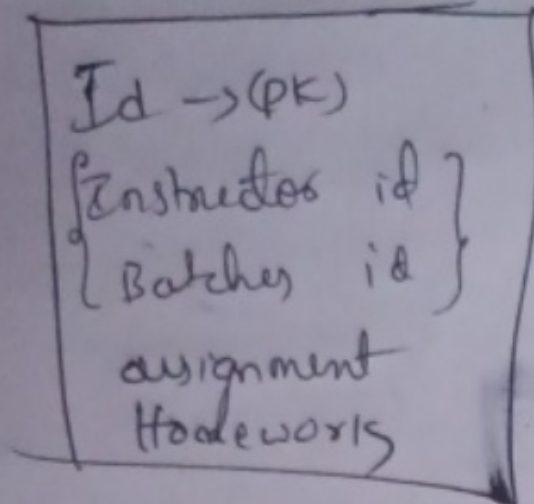 Id → (PK)
{Instructor id}
{Batches id}
assignment
Homeworks